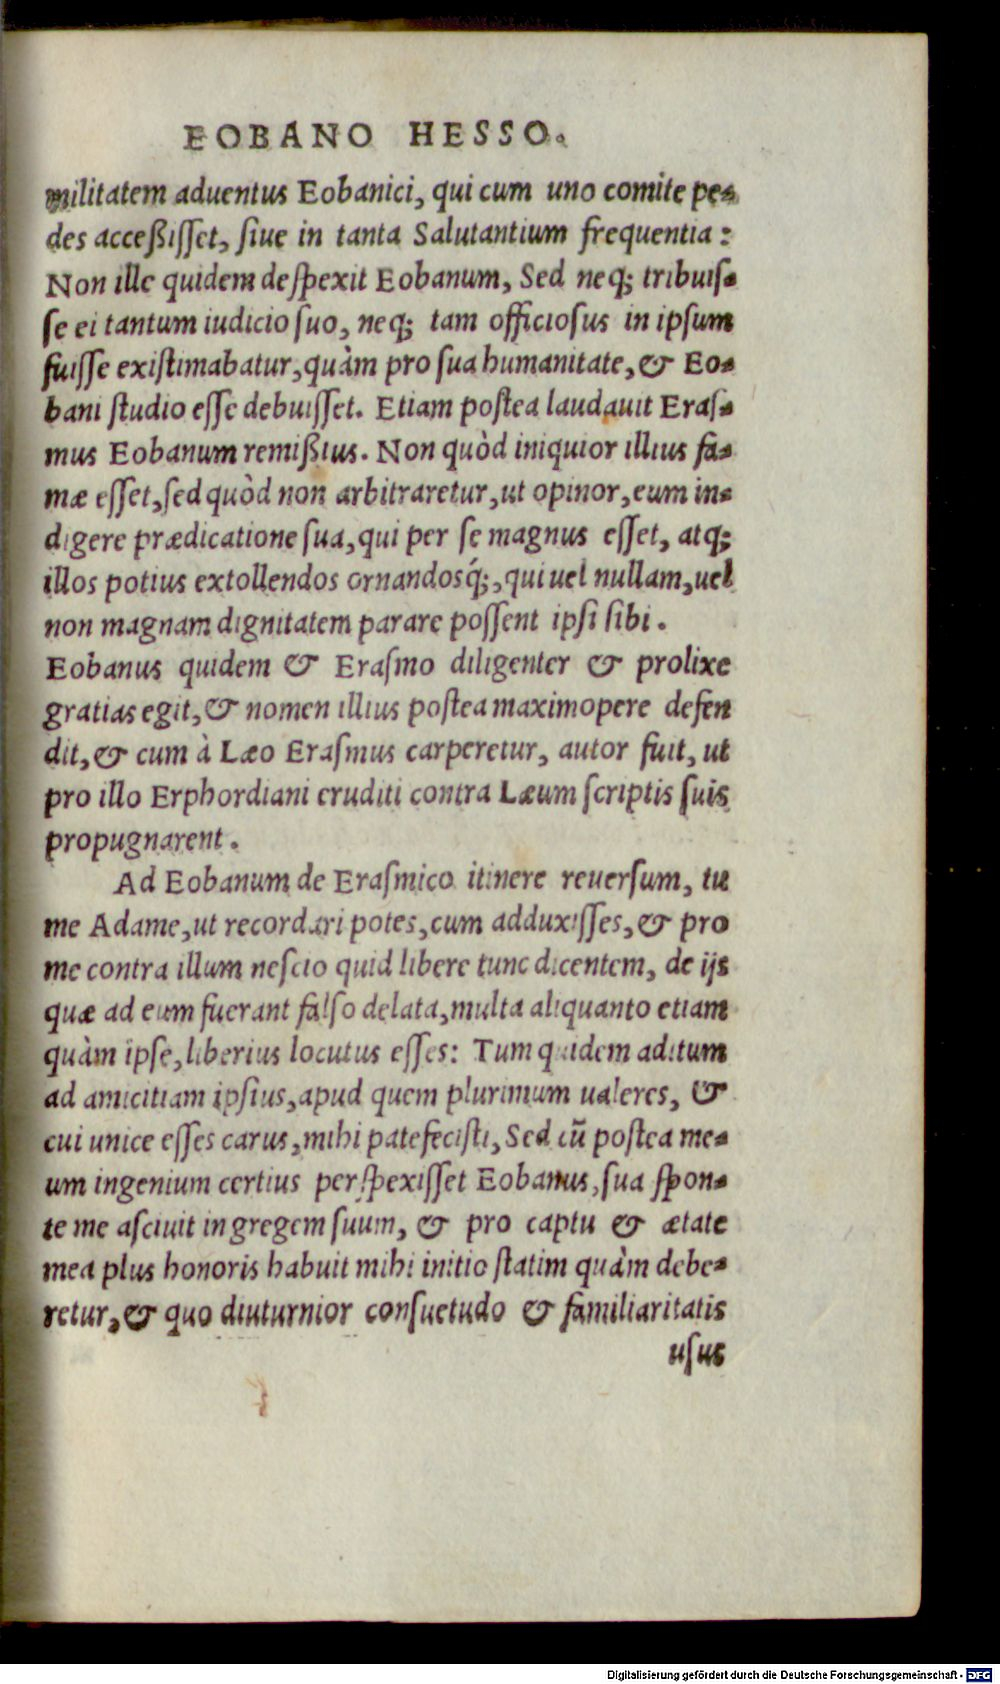 EOBANO HESSO.
militatem aduentus Eobanici, qui cum uno comite pe-
des acceßisſet, ſiue in tanta Salutantium frequentia:
Non ille quidem deſpexit Eobanum, Sed neq; tribuiſ-
ſe ei tantum iudicio ſuo, neq; tam officioſus in ipſum
fuiſſe exiſtimabatur, quàm pro ſua humanitate, & Eo-
bani ſtudio eſſe debuiſſet. Etiam poſtea laudauit Eraſ-
mus Eobanum remißius. Non quòd iniquior illius fa-
mæ eſſet, ſed quòd non arbitraretur, ut opinor, eum in-
digere prædicatione ſua, qui per ſe magnus eſſet, atq;
illos potius extollendos ornandosq́;, qui uel nullam, uel
non magnam dignitatem parare poſſent ipſi ſibi.
Eobanus quidem & Eraſmo diligenter & prolixe
gratias egit, & nomen illius poſtea maximopere defen
dit, & cum à Læo Eraſmus carperetur, autor fuit, ut
pro illo Erphordiani eruditi contra Læum ſcriptis ſuis
propugnarent.
Ad Eobanum de Eraſmico itinere reuerſum, tu
me Adame, ut recordari potes, cum adduxiſſes, & pro
me contra illum neſcio quid libere tunc dicentem, de ijs
quæ ad eum fuerant falſo delata, multa aliquanto etiam
quàm ipſe, liberius locutus eſſes: Tum quidem aditum
ad amicitiam ipſius, apud quem plurimum ualeres, &
cui unice eſſes carus, mihi patefeciſti, Sed cũ poſtea me-
um ingenium certius perſpexiſſet Eobanus, ſua ſpon-
te me aſciuit in gregem ſuum, & pro captu & ætate
mea plus honoris habuit mihi initio ſtatim quàm debe-
retur, & quo diuturnior conſuetudo & familiaritatis
uſus
Digitalisierung gefördert durch die Deutsche Forschungsgemeinschaft - DFG